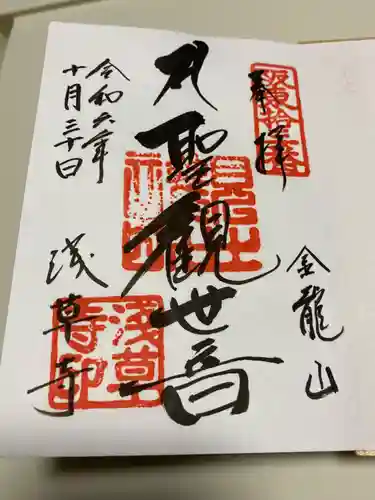 奉拝
坂東拾三番
金龍山
聖観世音
浅草寺
浅草寺印
令和六年
十月三十日